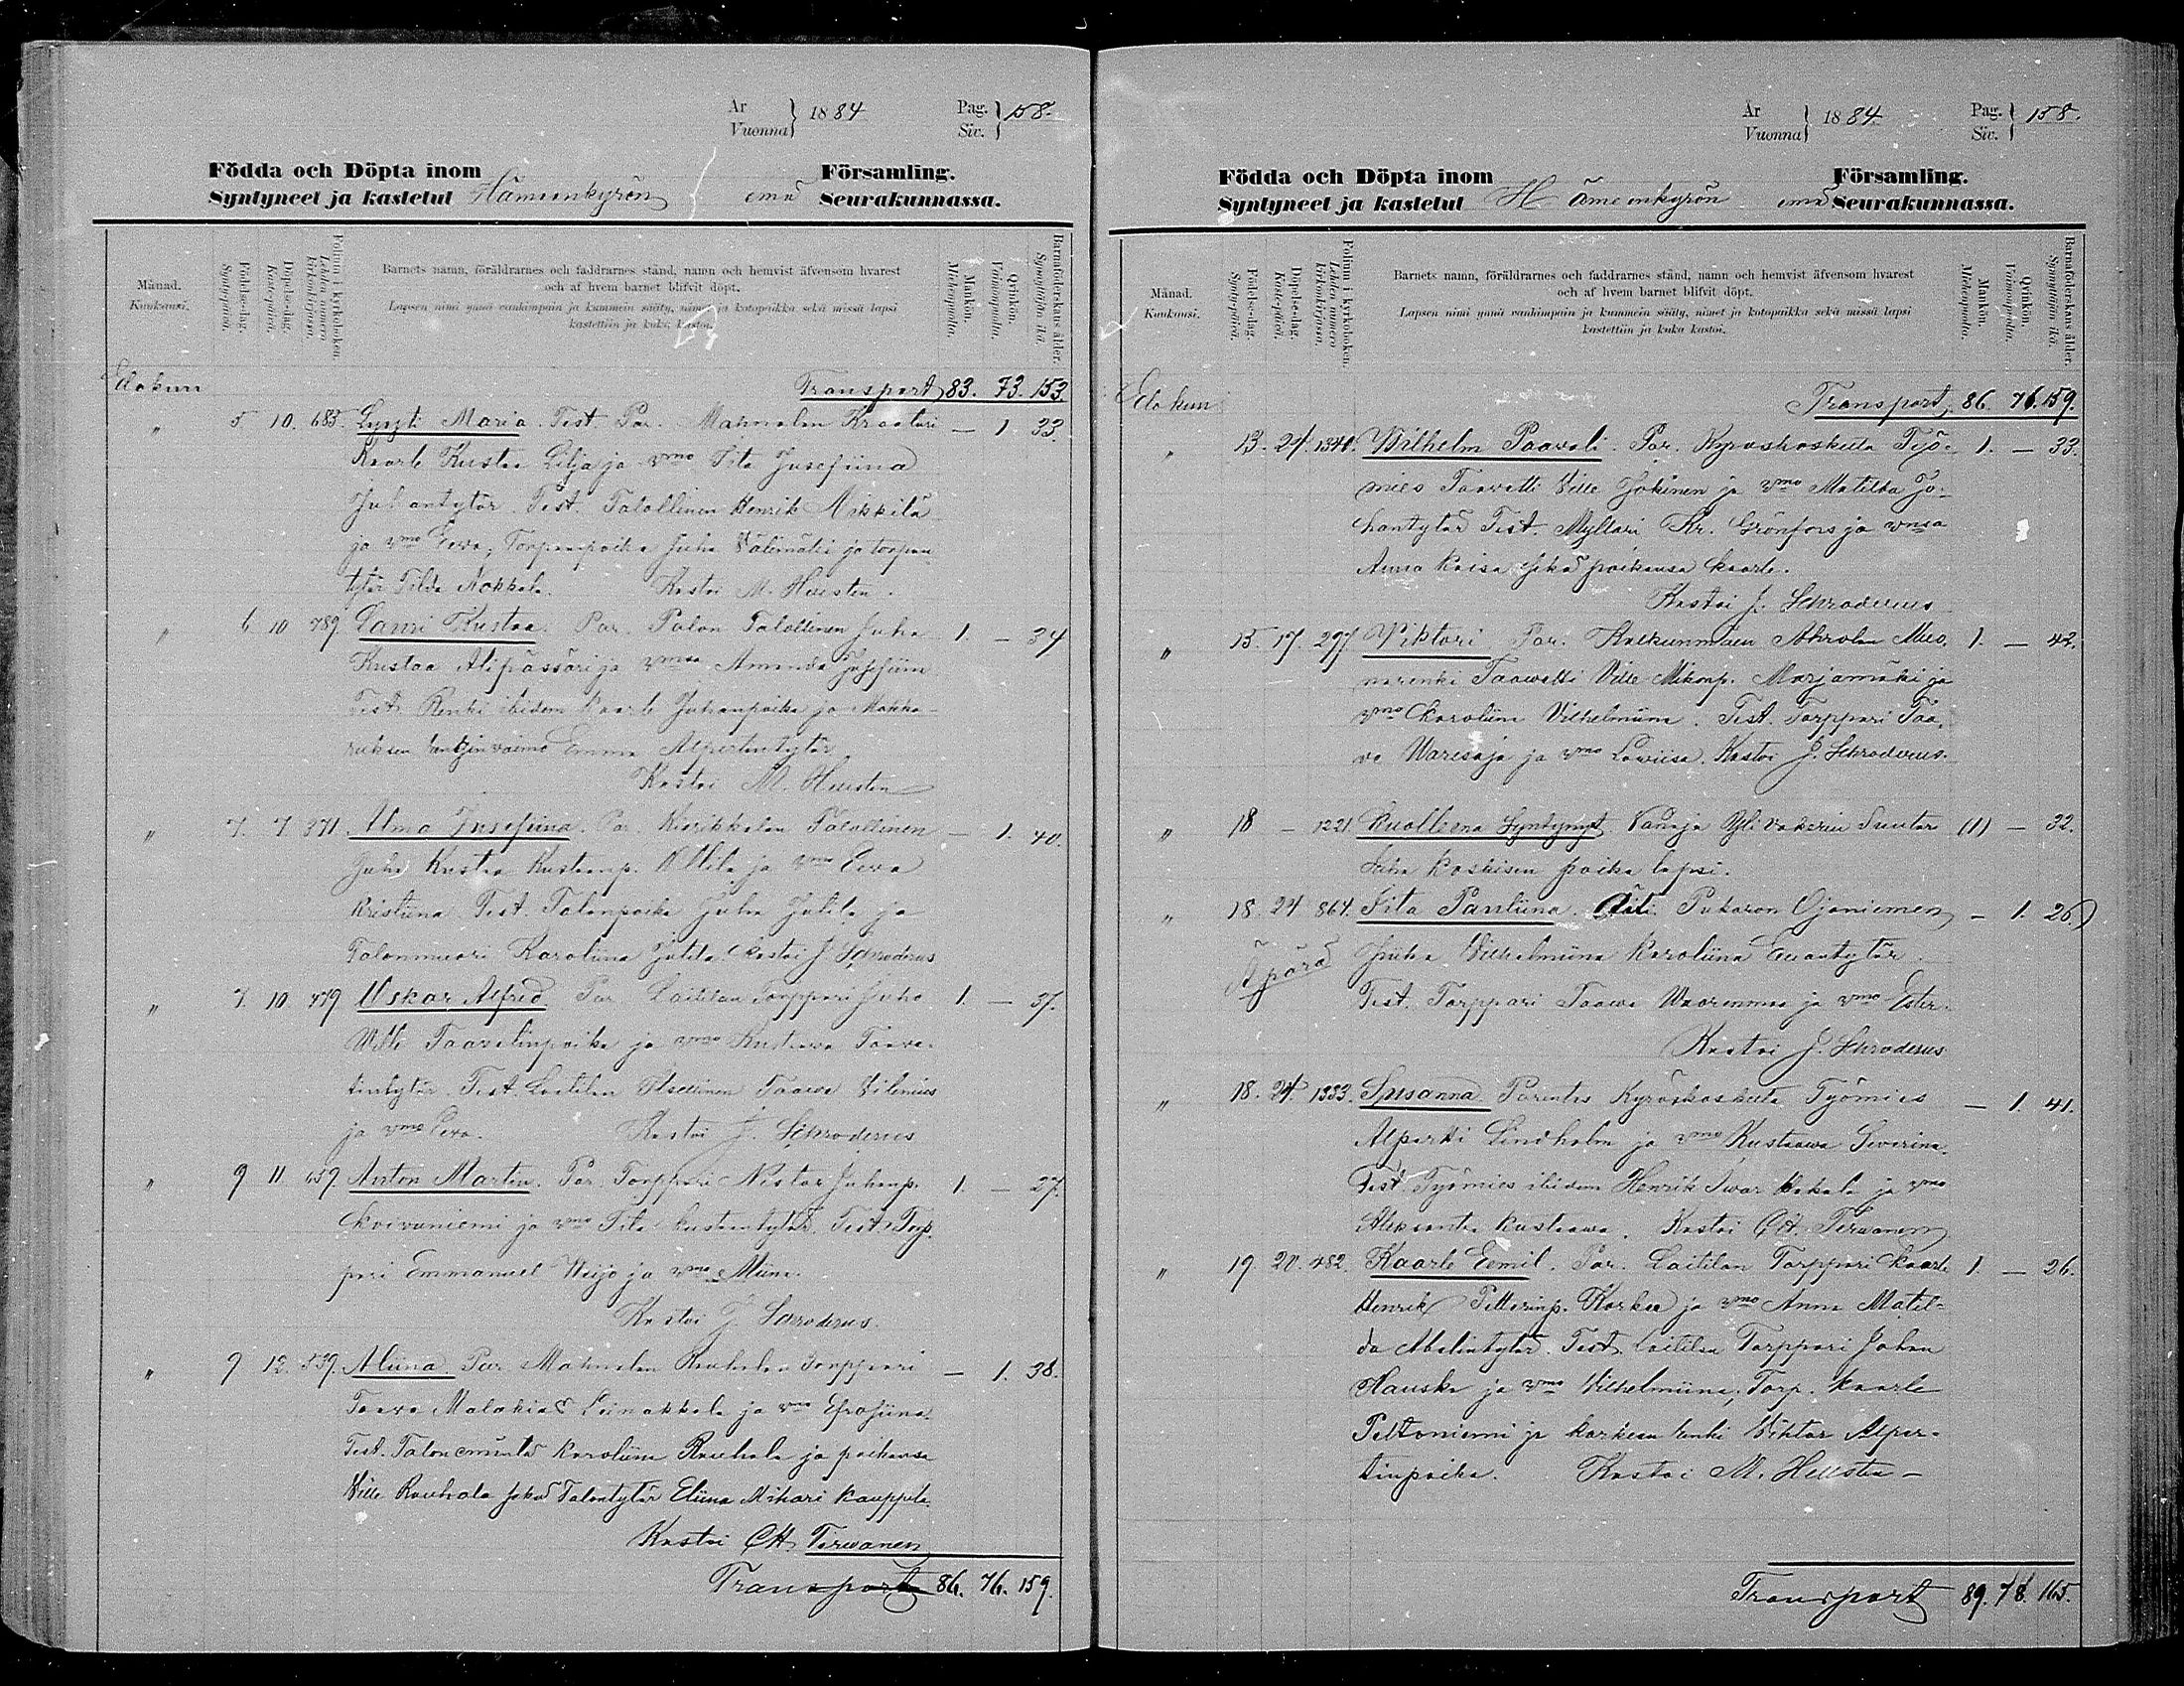 År
Vuonna } 1884
Pag.
Siv. } 158.
Födda och Döpta inom
Församling.
Syntyneet ja kastetut Hämeenkyrön emä Seurakunnassa.
Månad.
Kuukausi.
Födelse-dag.
Syntypäivä.
Döpelse-dag.
Kastepäivä.
Folium i kyrkoboken.
Lehden numero kirkonkirjassa.
Barnets namn, föräldrarnes och faddrarnes stånd, namn och hemvist äfvensom hvarest
och af hvem barnet blifvit döpt.
Lapsen nimi ynnä vanhimpain ja kummein sääty, nimet ja kotopaikka sekä missä lapsi
kastettiin ja kuka kastoi.
Mankön.
Miehenpuolia.
Qvinkön.
Vaimonpuolia.
Barnaföderskans ålder.
Synnyttäjän ikä.
Elokuu Transport 83. 73. 153.
" 5 10. 685. Lyyti Maria. Test. Par. Mahnalan Kraatari — 1 33.
Kaarle Kustaa Lilja ja vmo Iita Josefiina
Juhantytär. Test. Talollinen Henrik Mikkilä
ja vmo Eeva, Torpanpoika Juha Välimäki ja torpan
tytär Tilda Nokkala. Kastoi M. Hellsten.
" 6 10 789. Lauri Kustaa. Par. Palon Talollinen Juha 1. — 34
Kustaa Alipässäri ja vmsa Amanda Josefiina
Test. Renki ibidem Kaarle Juhanpoika ja
vaimo Emma Alpertintytär
Kastoi M. Hellsten
" 7. 7 371. Alma Josefiina. Par. Kierikkalan Talollinen — 1. 40.
Juha Kustaa Kustaanp. Uttila ja vmo Eeva
Kristiina. Test. Talonpoika Juha Jutila ja
Talonmuori Karoliina Jutila. Kastoi J. Schroderus
" 7. 10 479 Oskar Alfred. Par. Laitilan Torppari Juho 1. — 37.
Ville Taavetinpoika ja vmo Kustaava Taave-
tintytär. Test. Laitilan Itsellinen Taavi Vilenius
ja vmo Eeva. Kastoi J. Schroderus
" 9 11 659 Anton Martin. Par. Torppari Nestor Juhanp. 1. — 27.
Koivuniemi ja vmo Iita Kustaantytär. Test. Torp-
pari Emmanuel Weijo ja vmo Miina.
Kastoi J. Schroderus.
" 9 12. 539. Miina. Par. Mahnalan Rauhala Torppari — 1. 38.
Taava Malakias Leinakkala ja vmo Efrosiina.
Test. Talon emäntä Karoliina Rauhala ja poikansa
Ville Rauhala sekä Talontytär Eliina Mihari Kauppila.
Kastoi CH. Terwanen
Transport 86. 76. 159.
År
Vuonna } 1884.
Pag.
Siv. } 158.
Födda och Döpta inom
Församling.
Syntyneet ja kastetut Hämeenkyrön emä Seurakunnassa.
Månad.
Kuukausi.
Födelse-dag.
Syntypäivä.
Döpelse-dag.
Kastepäivä.
Folium i kyrkoboken.
Lehden numero kirkonkirjassa.
Barnets namn, föräldrarnes och faddrarnes stånd, namn och hemvist äfvensom hvarest
och af hvem barnet blifvit döpt.
Lapsen nimi ynnä vanhimpain ja kummein sääty, nimet ja kotopaikka sekä missä lapsi
kastettiin ja kuka kastoi.
Mankön.
Miehenpuolia.
Qvinkön.
Vaimonpuolia.
Barnaföderskans ålder.
Synnyttäjän ikä.
Elokuu Transport, 86. 76. 159.
" 13. 24. 1340. Wilhelm Paavali. Par. Kyröskoskelta Työ- 1. — 33.
mies Taavetti Ville Jokinen ja vmo Matilda Jo-
hantytär Test. Mylläri Kr. Grönfors ja vmsa
Anna Kaisa sekä poikansa Kaarle.
Kastoi J. Schroderus
" 15. 17. 297. Viktori Par. Kalkunmäen Ahrolan Muo- 1. — 42.
narenki Taavetti Ville Mikonp. Marjamäki ja
vmo Karoliina Vilhelmiina. Test. Torppari Taa-
va Waresoja ja vmo Loviisa. Kastoi J. Schroderus.
" 18 — 1221. Kuolleena Syntynyt. Vanaja Yli Vakerin Suutar (1) — 32.
Juha Koskisen poika lapsi.
" 18. 24 864. Iita Pauliina. Äiti Pukaron Ojaniemen — 1. 26)
Äpärä Vilhelmiina Karoliina Eevantytär.
Test. Torppari Taava Waarenmaa ja vmo Ester.
Kastoi J. Schroderus
" 18. 24. 1333. Susanna Parentes Kyröskoskelta Työmies — 1. 41.
Alpertti Lindholm ja vmo Kustaava Severina.
Test. Työmies ibidem Henrik Iwar Kokala ja vmo
Aleksantra Kustaava. Kastoi CH. Terwanen
" 19 20. 482. Kaarle Eemil. Par. Laitilan Torppari Kaarle 1. — 26.
Henrik Petterinp. Korkee ja vmo Anna Matil-
da Abelintytär. Test. Laitilan Torppari Johan
Hauska ja vmo Vilhelmiina, Torp. Kaarle
Peltoniemi ja Korkeen renki Wiktor Alper-
tinpoika. Kastoi M. Hellsten —
Transport 89. 78. 165.